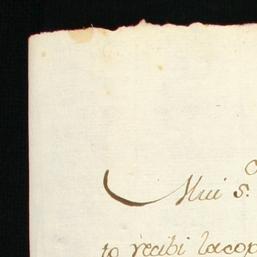 Mui S.
to recibi lacop